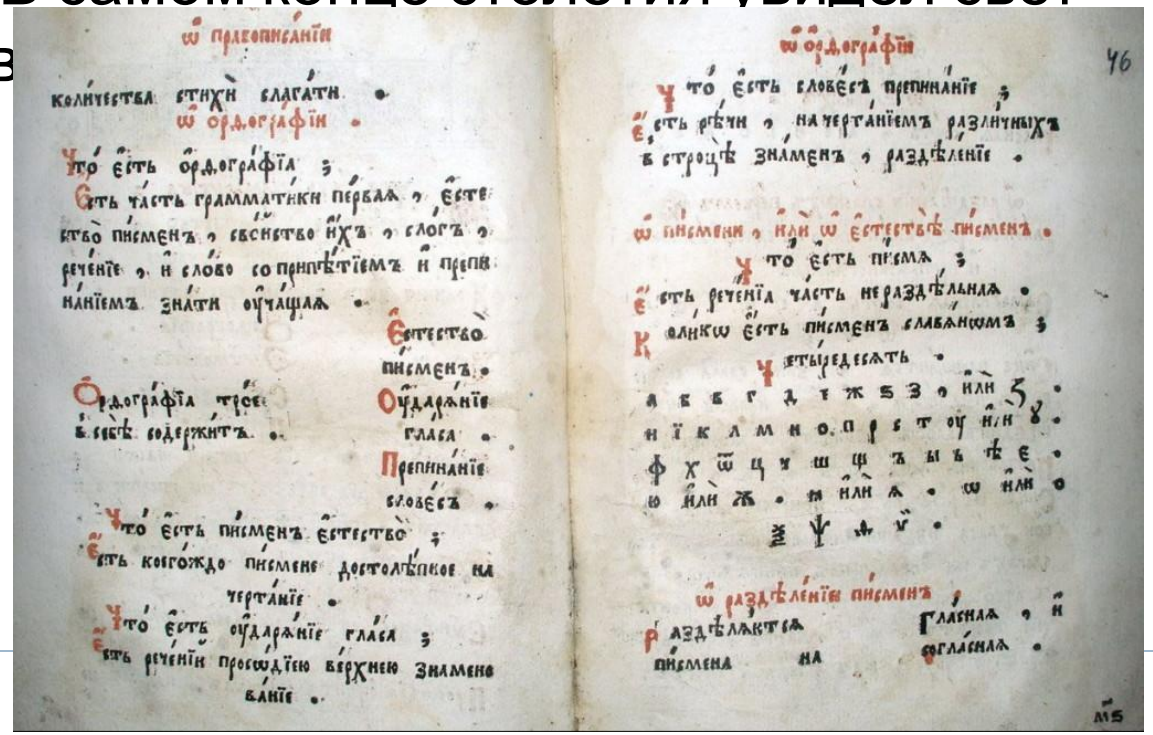 В самом конце столетия увидел свет
в
ѡ҆ правописа́нїи
коли́чества стихѝ слага́ти .
ѡ҆ ѻ҆рѳогра́фїи .
Что́ є҆́сть ѻ҆рѳогра́фїа ;
Є҆́сть ча́сть грамма́тики пе́рваѧ , є҆сте-
ство̀ пи́сменъ , сво́йство и҆́хъ , сло́гъ ,
рече́нїе , и҆ сло́во со припѣ́тїемъ и҆ препи-
на́нїемъ зна́ти ᲂу҆ча́щаѧ .
Є҆стество̀
пи́сменъ .
Ѻ҆рѳогра́фїа тро́е Оу҆даре́нїе
в̾ себѣ̀ содержи́тъ . гла́са .
Препина́нїе
слове́съ .
Что́ є҆́сть пи́сменъ є҆стество̀ ;
Є҆́сть коего́ждо пи́смене достолѣ́пное на
черта́нїе .
Что́ є҆́сть ᲂу҆дарѧ́нїе гла́са ;
Є҆́сть рече́нїй просѡді́ею ве́рхнею знамено
ва́нїе .
ѡ҆ ѻ҆рѳогра́фїи
46
Что́ є҆́сть слове́съ препина́нїе ;
Є҆́сть рѣ́чи , начерта́нїемъ разли́чныхъ
в̾ строцѣ̀ зна́менъ , раздѣле́нїе .
ѡ҆ пи́смени , и҆лѝ ѡ҆ є҆стествѣ̀ пи́сменъ .
Что́ є҆́сть пи́смѧ ;
Є҆́сть рече́нїа ча́сть нераздѣ́льнаѧ .
Коли́кѡ є҆́сть пи́сменъ славѧ́нѡмъ ;
Четы́редесѧть .
а б в г д е ж ѕ з , и҆лѝ ꙁ .
и ї к л м н о п р с т ᲂу и҆лѝ ꙋ .
ф х ѿ ц ч ш щ ъ ы ь ѣ є .
ю и҆лѝ ѫ . ꙗ и҆лѝ ѧ . ѡ и҆лѝ о
ѯ ѱ ѳ ѵ .
ѡ҆ раздѣле́нїи пи́сменъ .
Раздѣлѧ́ютсѧ Гла́снаѧ , и҆
пи́смена на согла́снаѧ .
м҃ѕ